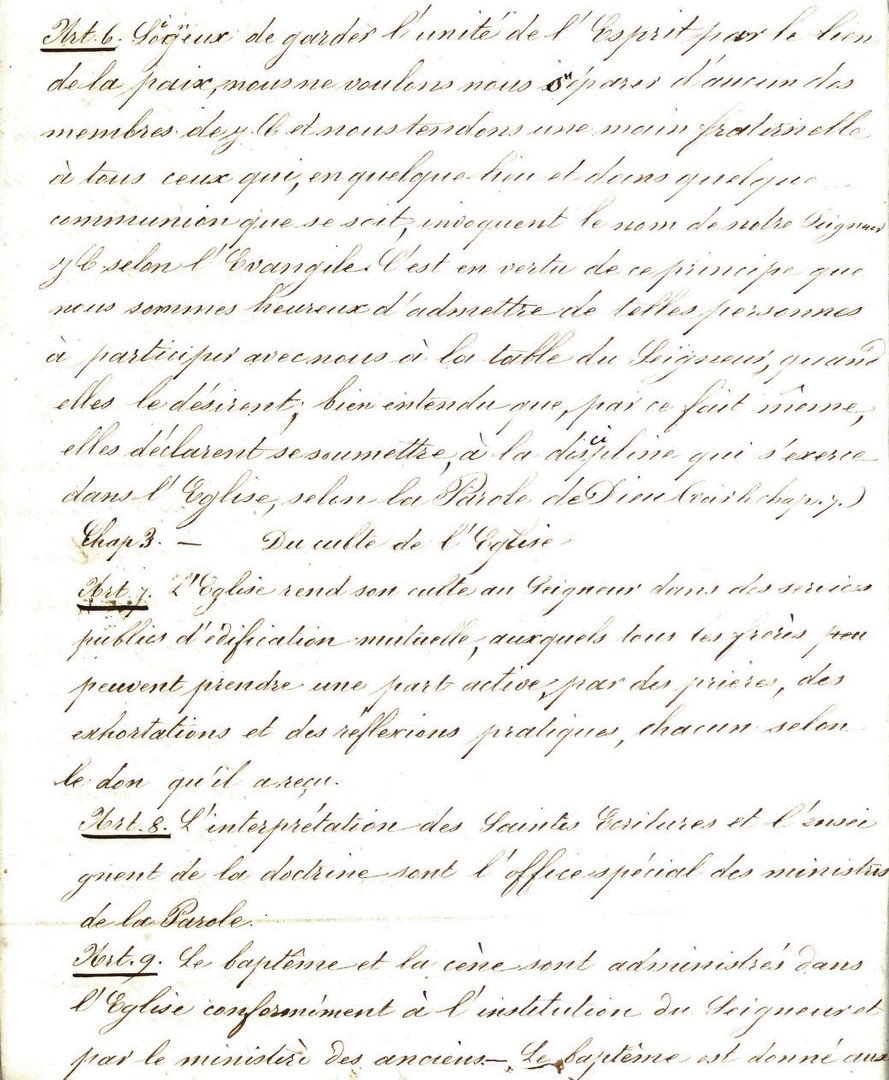 Art. 6. Soigneux de garder l'unité de l'Esprit par le lien
de la paix, nous ne voulons nous séparer d'aucun des
membres de J. C et nous tendons une main fraternelle
à tous ceux qui, en quelque lieu et dans quelque
communion que se soit, invoquent le nom de notre Seigneur
J C selon l'Evangile. C'est en vertu de ce principe que
nous sommes heureux d'admettre de telles personnes
à participer avec nous à la table du Seigneur, quand
elles le désirent; bien entendu que, par ce fait même,
elles déclarent se soumettre, à la discipline qui s'exerce
dans l'Eglise, selon la Parole de Dieu (voir le chap. 7.)
Chap 3. — Du culte de l'Eglise
Art. 7. L'Eglise rend son culte au Seigneur dans des services
publics d'édification mutuelle, auxquels tous les frères peu
peuvent prendre une part active, par des prières, des
exhortations et des réflexions pratiques, chacun selon
le don qu'il a reçu.
Art. 8. L'interprétation des Saintes Ecritures et l'ensei
gnent de la doctrine sont l'office spécial des ministres
de la Parole.
Art. 9. Le baptême et la cène sont administrés dans
l'Eglise conformément à l'institution du Seigneur et
par le ministère des anciens — Le baptême est donné aux